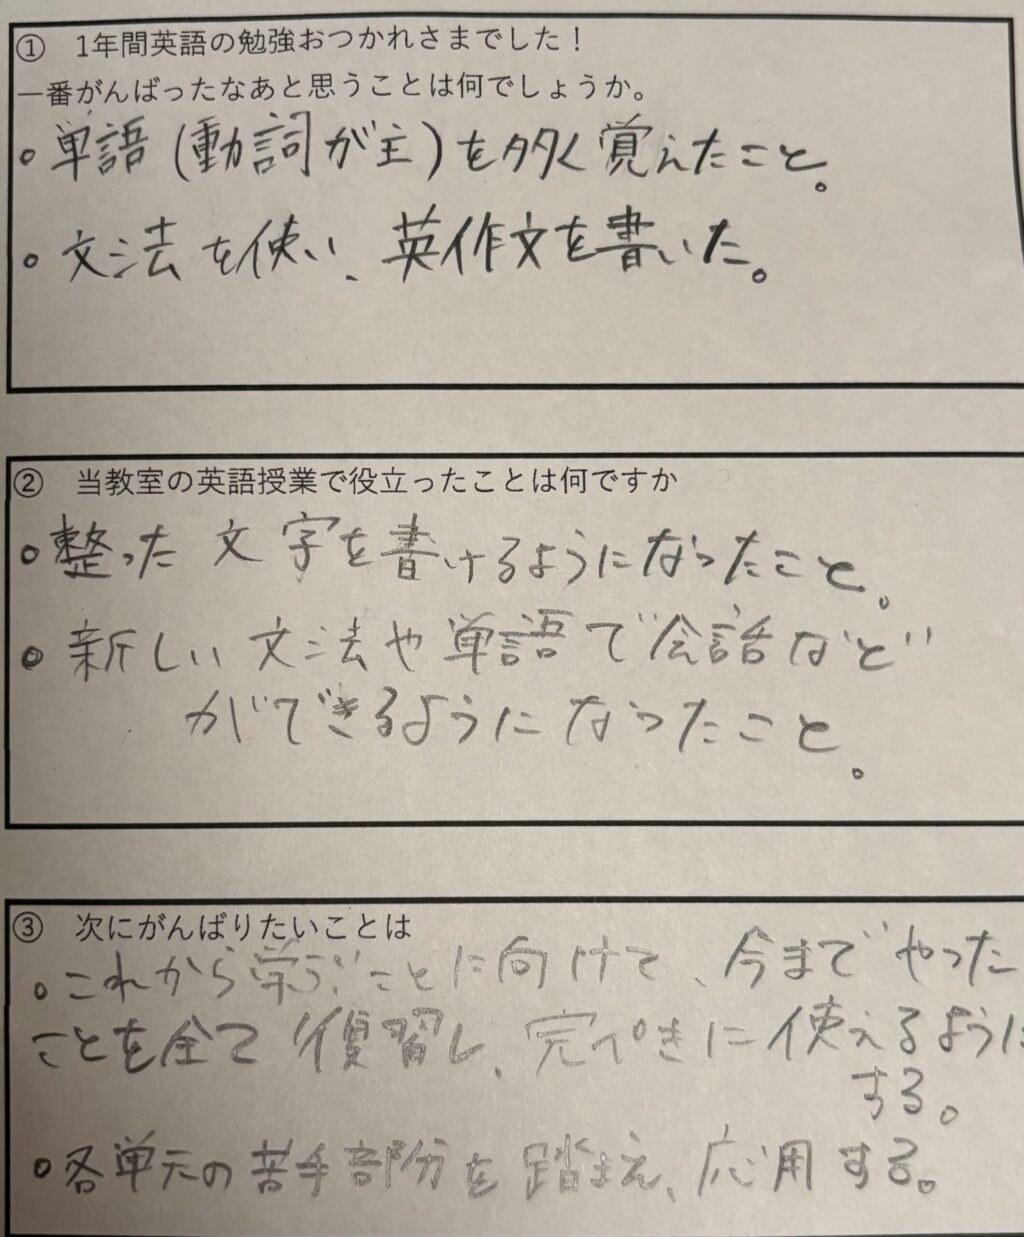 ① 1年間英語の勉強おつかれさまでした！
一番がんばったなあと思うことは何でしょうか。
・単語(動詞が主)を多く覚えたこと。
・文法を使い、英作文を書いた。
② 当教室の英語授業で役立ったことは何ですか
・整った文字を書けるようになったこと。
・新しい文法や単語で会話など
ができるようになったこと。
③ 次にがんばりたいことは
・これから学ぶことに向けて、今までやった
ことを全て復習し、完ぺきに使えるように
する。
・各単元の苦手部分を踏まえ、応用する。